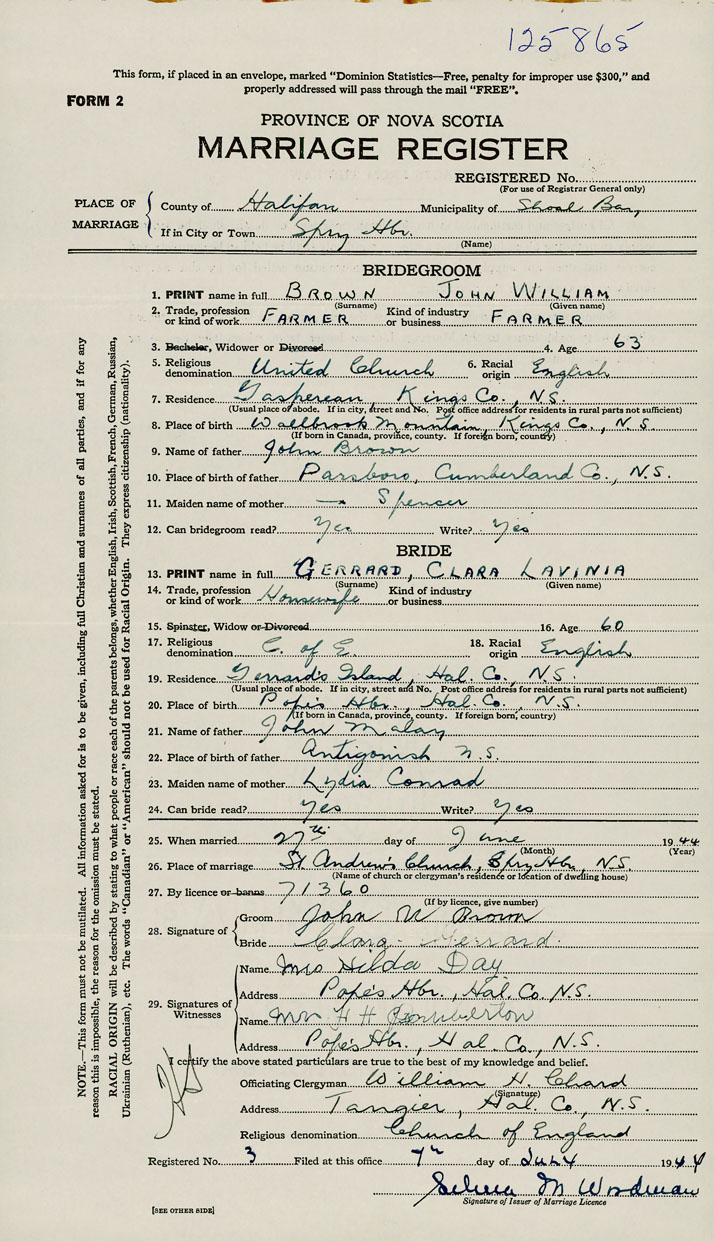 125865
This form, if placed in an envelope, marked "Dominion Statistics—Free, penalty for improper use $300," and
properly addressed will pass through the mail "FREE".
FORM 2
PROVINCE OF NOVA SCOTIA
MARRIAGE REGISTER
REGISTERED No.
(For use of Registrar General only)
PLACE OF MARRIAGE
County of Halifax Municipality of Shoal Bay
If in City or Town Spry Hbr.
(Name)
BRIDEGROOM
1. PRINT name in full BROWN JOHN WILLIAM
(Surname) (Given name)
2. Trade, profession or kind of work FARMER Kind of industry or business FARMER
3. Bachelor, Widower or Divorced 4. Age 63
5. Religious denomination United Church 6. Racial origin English
7. Residence Gaspereau, Kings Co., N.S.
(Usual place of abode. If in city, street and No. Post office address for residents in rural parts not sufficient)
8. Place of birth Wallbrook Mountain, Kings Co., N.S.
(If born in Canada, province, county. If foreign born, country)
9. Name of father John Brown
10. Place of birth of father Parsboro, Cumberland Co., N.S.
11. Maiden name of mother — Spencer
12. Can bridegroom read? Yes Write? Yes
BRIDE
13. PRINT name in full GERRARD, CLARA LAVINIA
(Surname) (Given name)
14. Trade, profession or kind of work Housewife Kind of industry or business
15. Spinster, Widow or Divorced 16. Age 60
17. Religious denomination C. of E. 18. Racial origin English
19. Residence Gerrard's Island, Hal. Co., N.S.
(Usual place of abode. If in city, street and No. Post office address for residents in rural parts not sufficient)
20. Place of birth Pope's Hbr., Hal. Co., N.S.
(If born in Canada, province, county. If foreign born, country)
21. Name of father John Malay
22. Place of birth of father Antigonish N.S.
23. Maiden name of mother Lydia Conrad
24. Can bride read? Yes Write? Yes
25. When married 27th day of June 1944
(Month) (Year)
26. Place of marriage St Andrew's Church, Spry Hbr., N.S.
(Name of church or clergyman's residence or location of dwelling house)
27. By licence or banns 71360
(If by licence, give number)
28. Signature of
Groom John W Brown
Bride Clara Gerrard
29. Signatures of Witnesses
Name Mrs Hilda Day
Address Pope's Hbr., Hal. Co. N.S.
Name F H Pemberton
Address Pope's Hbr., Hal. Co., N.S.
I certify the above stated particulars are true to the best of my knowledge and belief.
Officiating Clergyman William H. Chard
(Signature)
Address Tangier, Hal. Co., N.S.
Religious denomination Church of England
Registered No. 3 Filed at this office 7th day of JULY 1944
Selena M Woodman
Signature of Issuer of Marriage Licence
[SEE OTHER SIDE]
NOTE.—This form must not be mutilated. All information asked for is to be given, including full Christian and surnames of all parties, and if for any
reason this is impossible, the reason for the omission must be stated.
RACIAL ORIGIN will be described by stating to what people or race each of the parents belongs, whether English, Irish, Scottish, French, German, Russian,
Ukrainian (Ruthenian), etc. The words "Canadian" or "American" should not be used for Racial Origin. They express citizenship (nationality).